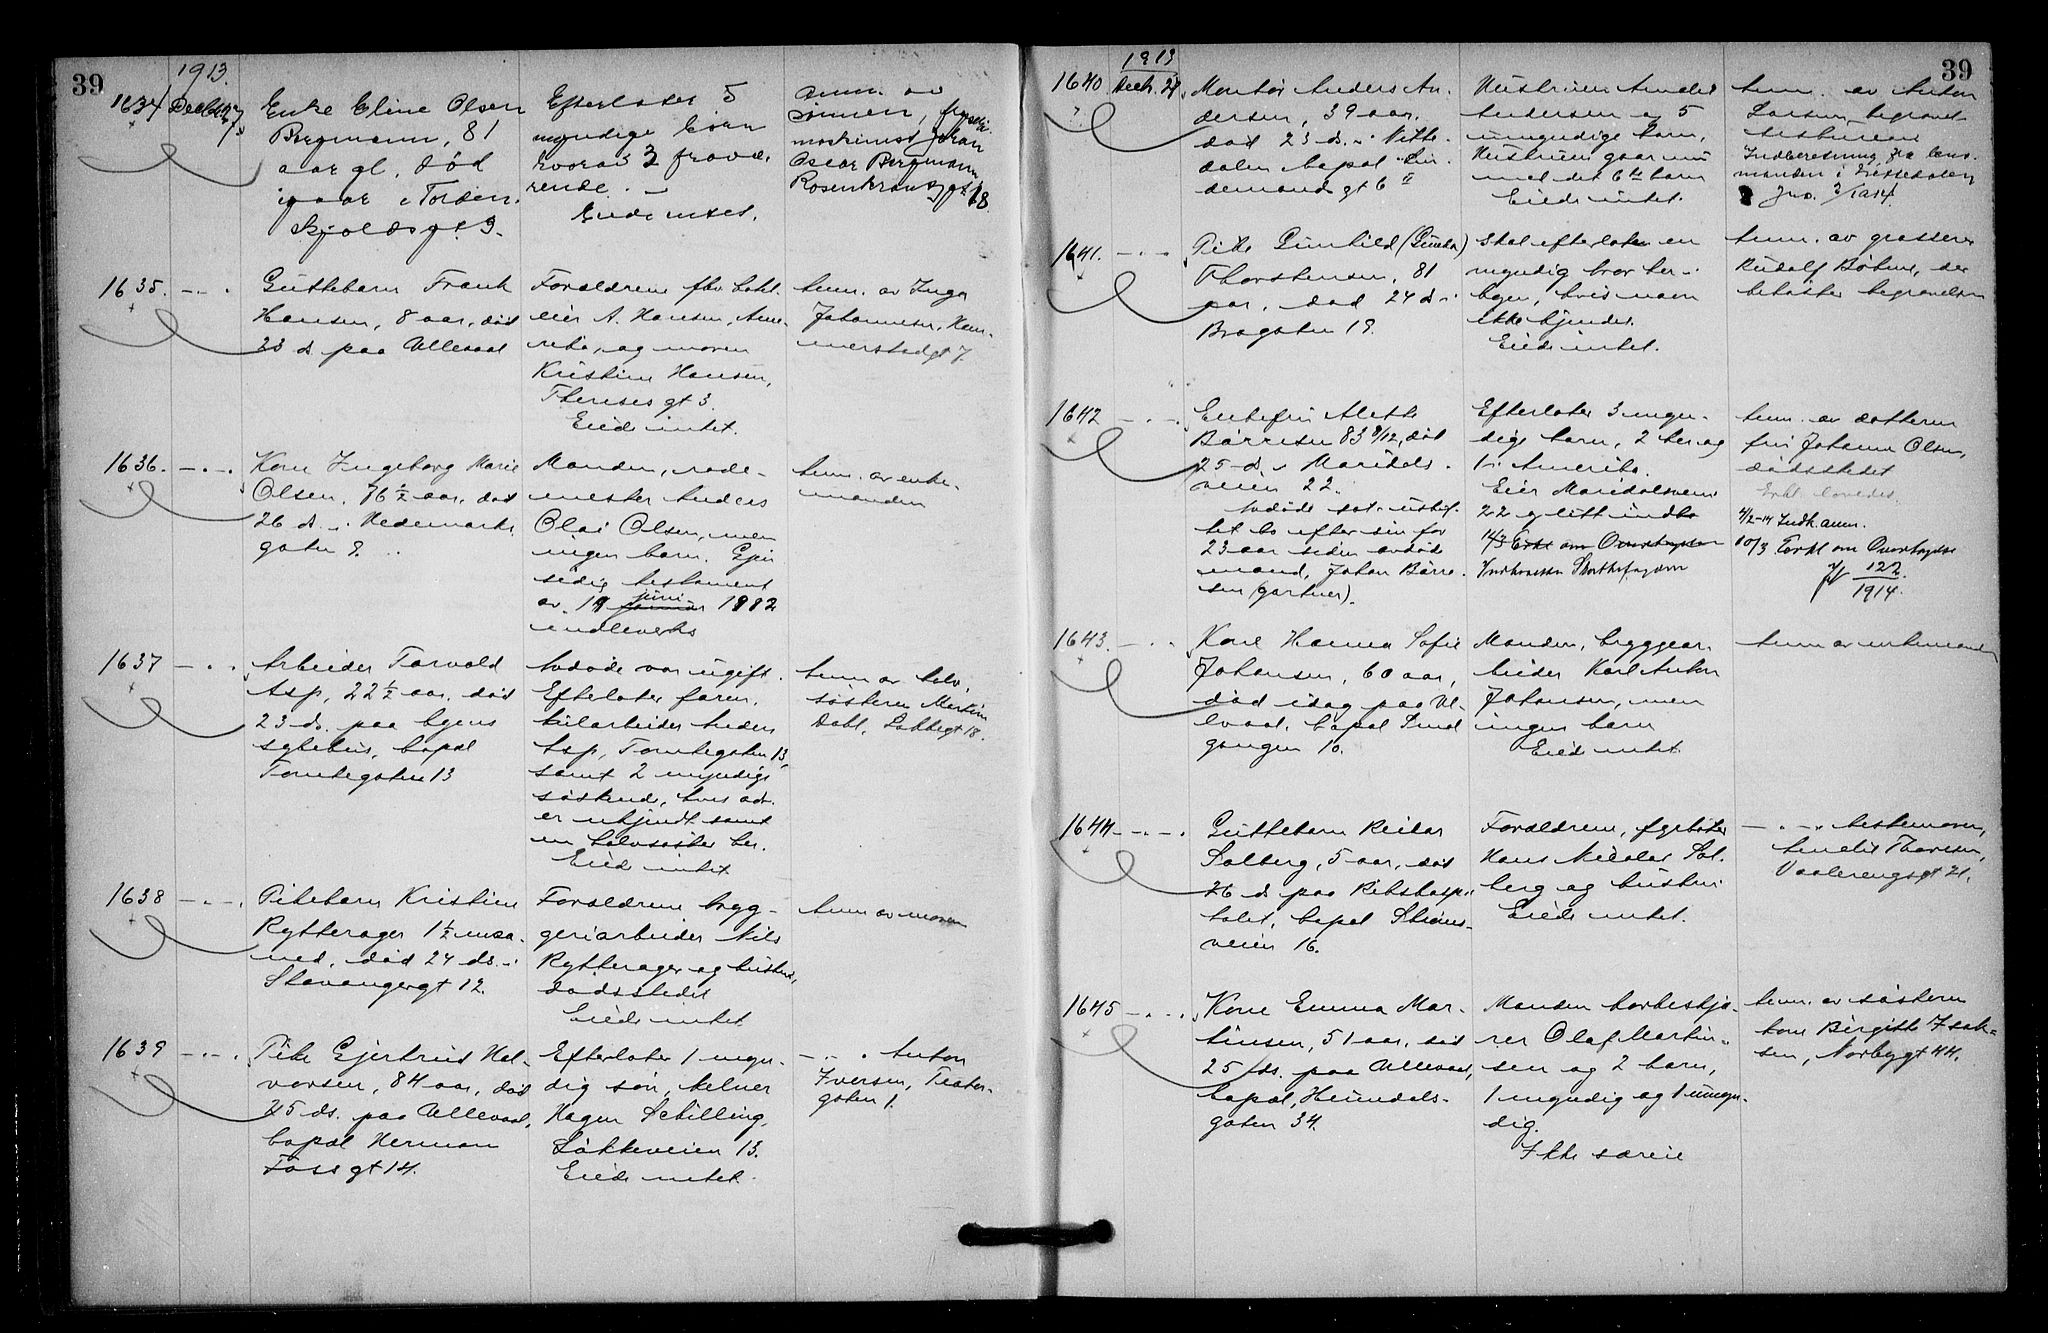 39
1913.
1634 Decbr 27
Enke Eline Olsen
Bergmann, 81
aar gl. død
igaar i Torden-
skjoldsgt. 3.
Efterlater 5
myndige børn
hvorav 3 fravæ-
rende.
Eiede intet.
anm. av
sønnen,
maskinist Johan
Oscar Bergmann
Rosenkrantzgt. 18.
1635. — . — .
Guttebarn Frank
Hansen, 8 aar, død
23 ds paa Ullevaal
Forældrene fhv.
eier A. Hansen, Ame-
rika, og moren
Kristine Hansen,
Theresesgt 3.
Eiede intet.
anm. av Inga
Johannesen, Ham-
merstadgt 7.
1636. — . — .
Kone Ingeborg Marie
Olsen, 76 ½ aar, død
26 ds. i Hedemarks-
gaten 8.
Manden, rode-
mester Anders
Olai Olsen, men
ingen barn. Gjen
sidig testament
av 19 juni 1882
indleverts
anm. av enke-
manden
1637 — . — .
Arbeider Torvald
Asp, 22 ½ aar, død
23 ds. paa byens
sykehus, bopæl
Tomtegaten 13
Avdøde var ugift.
Efterlater faren,
Anders
Asp, Tomtegaten 13,
samt 2 myndige
søskende, hvis adr.
er ukjendt samt
en halvsøster her.
Eied intet
anm av halv
søsteren Martine
Dahl, Lakkegt 18.
1638 — . — .
Pikebarn Kristine
Rytterager 1 ½ maa-
ned, død 24 ds. i
Stavangergt 12.
Forældrene bryg-
geriarbeider Nils
Rytterager og hustru,
dødsstedet
Eiede intet
anm av moren
1639 — . — .
Pike Gjertrud Hal-
vorsen, 84 aar, død
25 ds. paa Ullevaal,
bopæl Herman
Foss gt 14.
Efterlater 1 myn-
dig søn, kelner
Hagen Schilling,
Løkkeveien 13.
Eiede intet.
— . — . Anton
Iversen, Teater-
gaten 1.
39
1913
1640 Decbr. 27
Montør Anders An-
dersen, 39 aar.
død 23 ds. i Nitte-
dalen, bopæl Lin-
demansgt 6 II
Hustruen
Andersen og 5
umyndige barn,
Hustruen gaar nu
med det 6te barn
Eiede intet.
anm. av Anton
Larsen, begravel-
Indberetning fra lens-
manden i
1641. — . — .
Pike Gunhild (Gunda)
Thorstensen, 81
aar, død 24 ds i
Brogaten 18.
Skal efterlate en
myndig bror her i
byen, hvis navn
ikke kjendes.
Eiede intet.
anm. av grosserer
Rudolf Bøhme, der
bekoster begravelsen
1642 — . — .
Enkefru Alette
Børresen 83 9/12, død
25 ds. i Maridals-
veien 22.
Avdøde sat i uskif-
tet bo efter sin for
23 aar siden avdøde
mand, Johan Børre-
sen (gartner).
Efterlater 3 myn-
dige barn, 2 her og
1 i Amerika.
Eier Maridalsveien
22 og litt indbo
14/3 Erkl om Overtagelse
anm. av datteren
fru Johanne Olsen,
dødsstedet
4/2-14 Indk. anm.
10/3 Forkl om Overtagelse
122
1914.
1643. — . — .
Kone Hanna Sofie
Johansen, 60 aar,
død idag paa Ul-
levaal, bopæl Fred
gangen 10.
Manden, bryggear-
beider Karl Anton
Johansen, men
ingen barn
Eiede intet
anm av enkemanden
1644 — . — .
Guttebarn Reidar
Solberg, 5 aar, død
26 ds paa Rikshospi-
talet, bopæl Strøms-
veien 16.
Forældrene, fyrbøter
Hans Nicolai Sol-
berg og hustru
Eiede intet.
— . — . bestemoren,
Thoresen,
Vaalerengsgt 21.
1645 — . — .
Kone Emma Mar-
tinsen, 51 aar, død
25 ds. paa Ullevaal,
bopæl, Heimdals-
gaten 34.
Manden havbeskjæ-
rer Olaf Martin-
sen og 2 barn,
1 myndig og 1 umyn-
dig.
Ikke særeie
anm. av søsteren
kone Birgitte Isak-
sen, Norbygt 44.